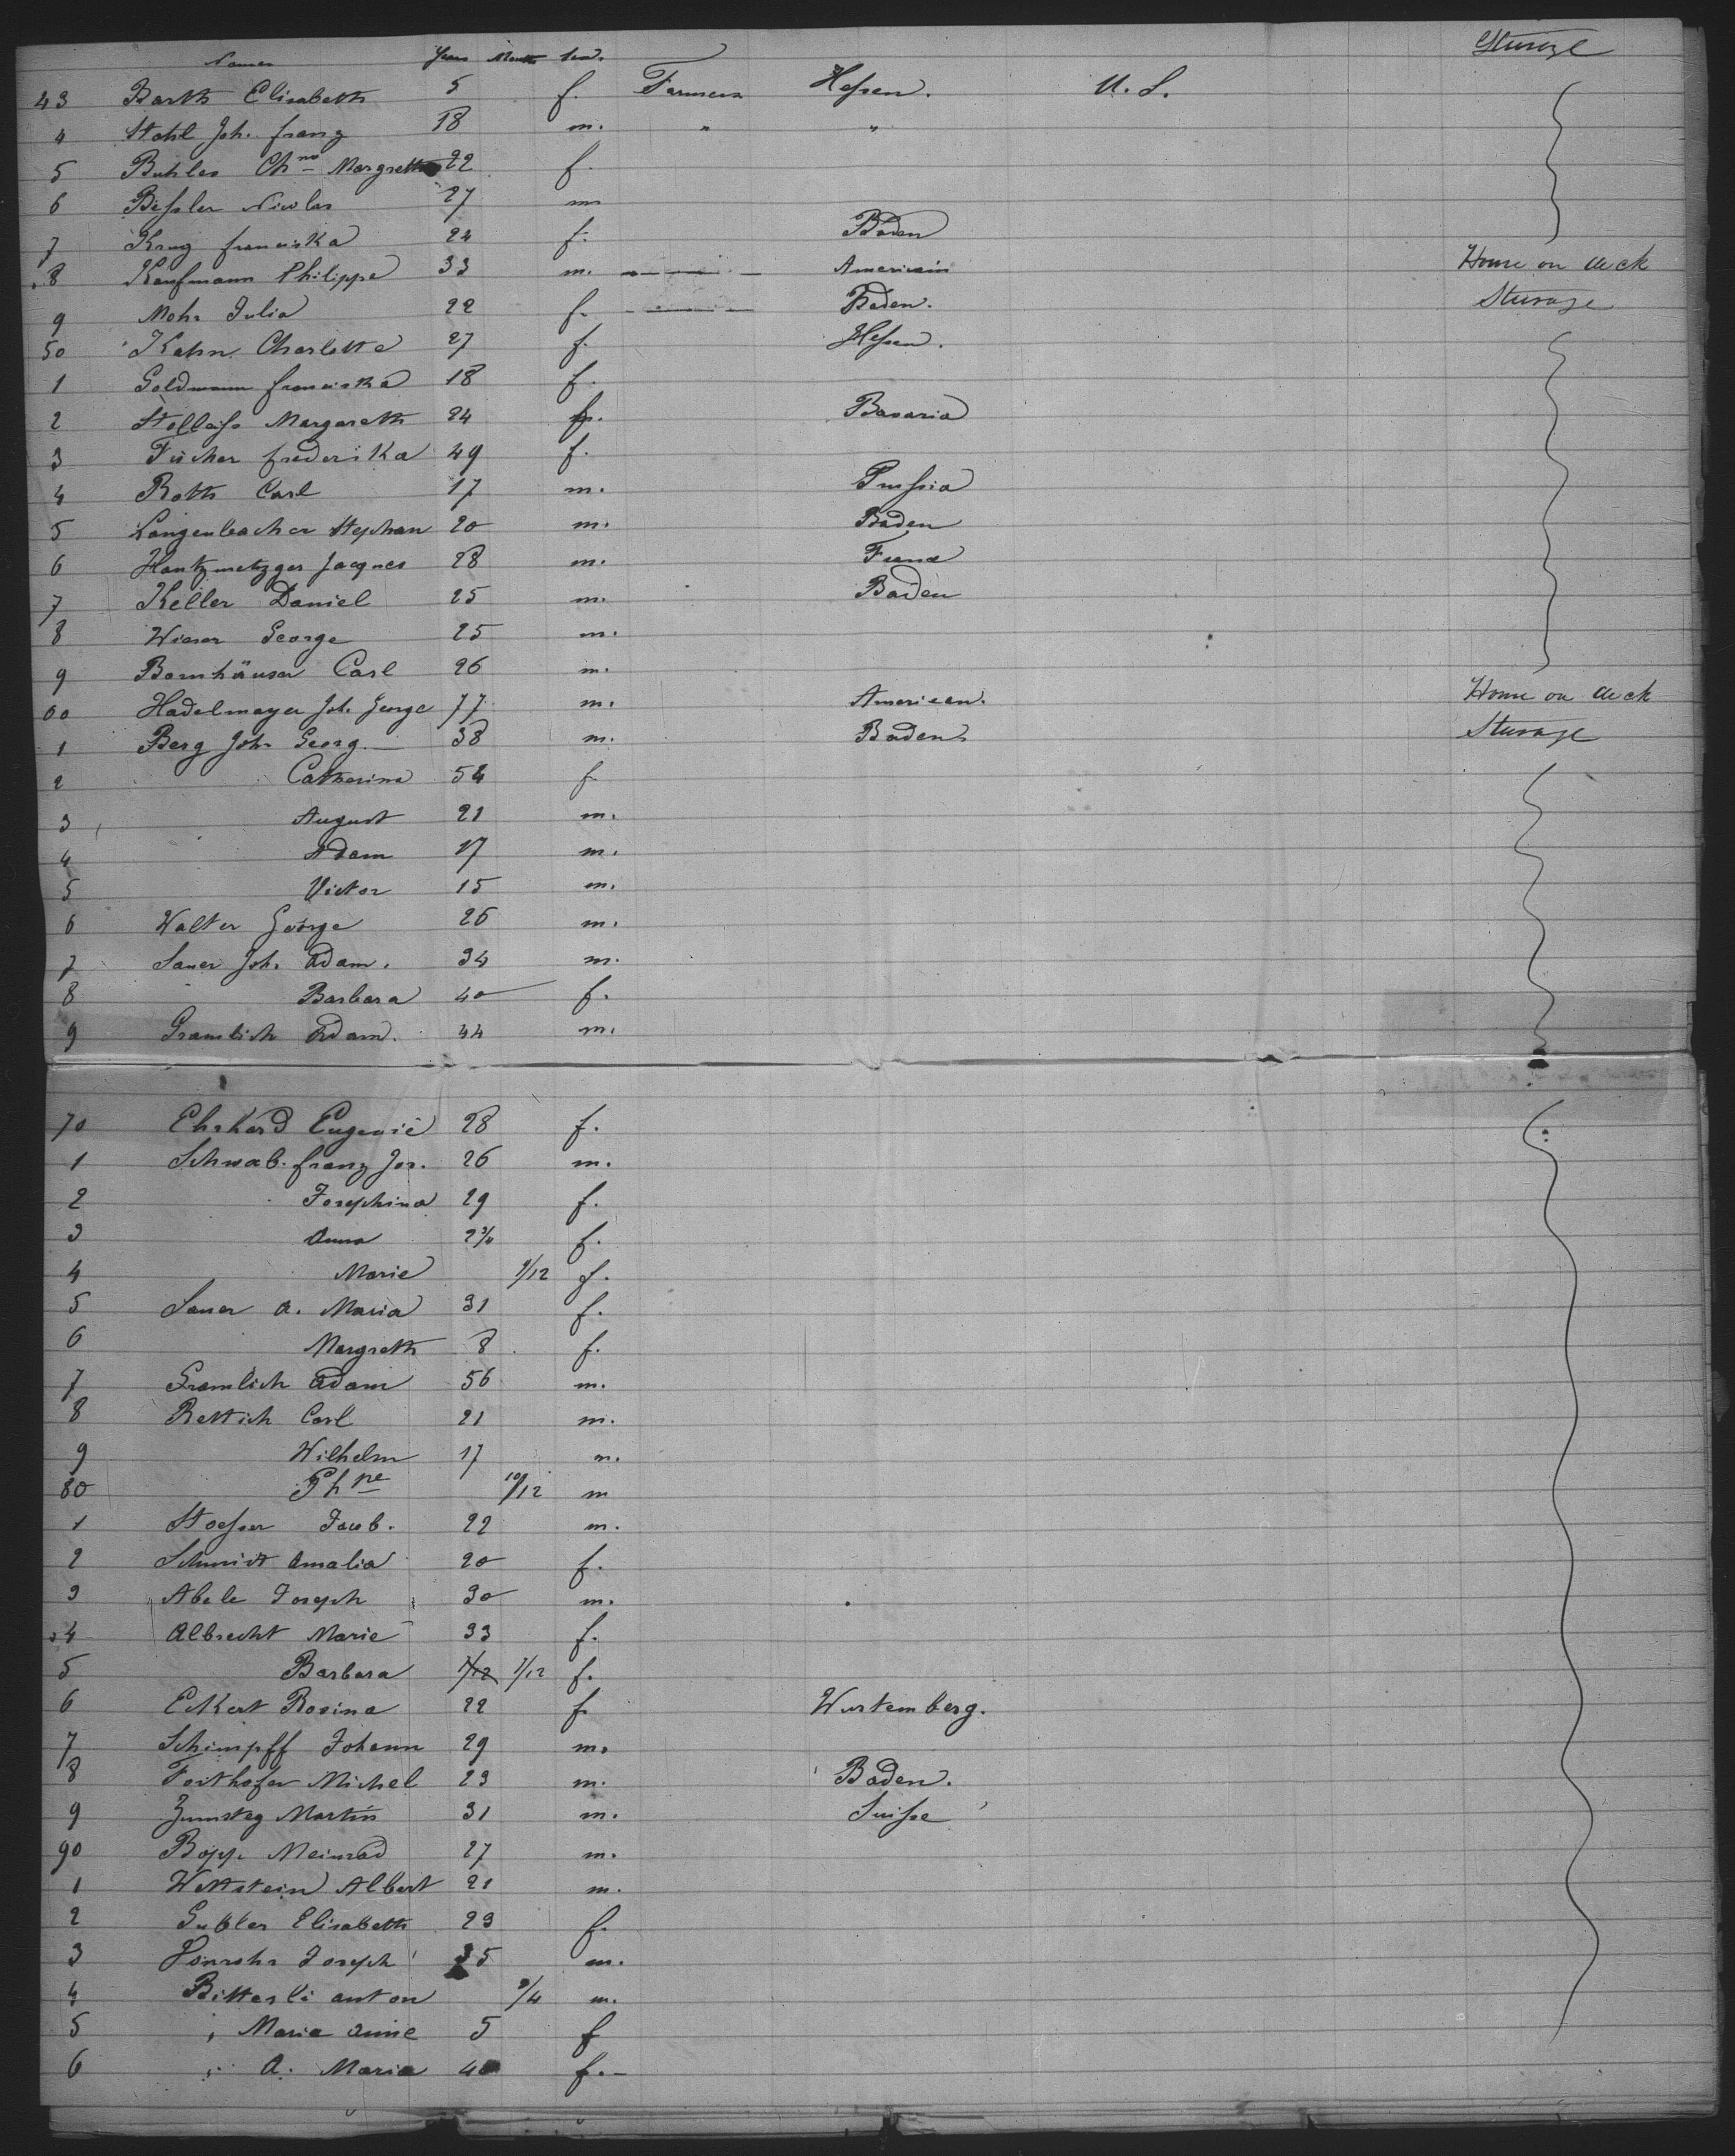 Names Years Months Steerage
43 Barth Elisabeth 5 f. Farmers Hessen. U. S.
4 Stohl Joh. franz 18 m. " "
5 Buhler Chne Margreth 22 f.
6 Bessler Nicolas 27 m
7 Krug franciska 24 f. Baden
8 Kaufmann Philippe 33 m. Americain House on deck
9 Mohr Julia 22 f. Baden. Steerage
50 Kahn Charlotte 27 f. Hessen.
1 Goldmann franciska 18 f.
2 Margareth 24 f. Bavaria
3 Fischer frederika 49 f.
4 Roth Carl 17 m. Prussia
5 Langenbacher Stephan 20 m. Baden
6 Hantzmetzger Jacques 28 m. France
7 Keller Daniel 25 m. Baden
8 Wieser George 25 m.
9 Bornhäuser Carl 26 m.
60 Hadelmayer Joh. George 77 m. American. House on deck
1 Berg Joh. Georg 38 m. Baden Steerage
2 Catherina 54 f
3 August 21 m.
4 Adam 17 m.
5 Victor 15 m.
6 Walter George 26 m.
7 Sauer Joh. Adam. 34 m.
8 Barbara 40 f.
9 Gramlich Adam. 44 m.
70 Ehrhard Eugenie 28 f.
1 Schwab franz Jos. 26 m.
2 Josephina 29 f.
3 Anna 2 3/4 f.
4 Marie 9/12 f.
5 Sauer A. Maria 31 f.
6 Margreth 8 f.
7 Gramlich Adam 56 m.
8 Rettich Carl 21 m.
9 Wilhelm 17 m.
80 Phpe 10/12 m
1 Stoesser Jacob. 22 m.
2 Schmidt Amalia 20 f.
3 Abele Joseph 30 m.
4 Albrecht Marie 33 f.
5 Barbara 7/12 7/12 f.
6 Eckert Rosina 22 f. Wurtemberg.
7 Schimpff Johann 29 m.
8 Forthofer Michel 23 m. Baden.
9 Zumsteg Martin 31 m. Suisse
90 Bopp Meinrad 27 m.
1 Wettstein Albert 21 m.
2 Gubler Elisabeth 23 f.
3 Vonrohr Joseph 35 m.
4 Bitterli anton 3/4 m.
5 " Maria anne 5 f
6 " A. Maria 40 f.